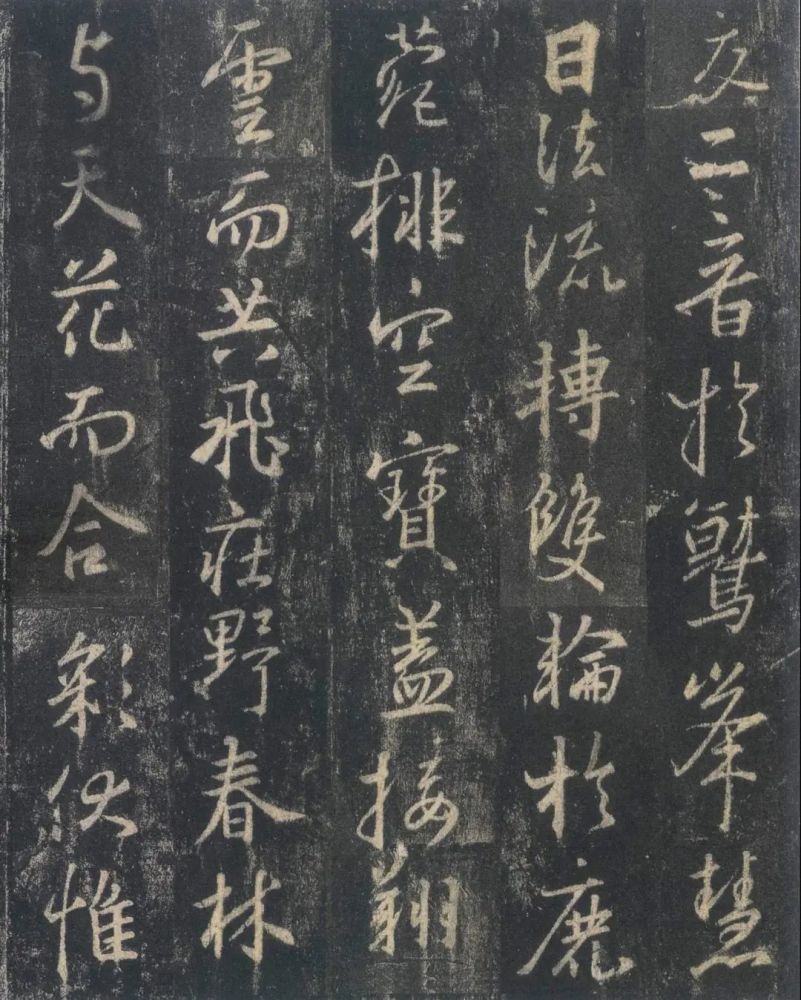 交二音於鷲峯慧
日法流轉雙輪於鹿
菀排空寶蓋接翔
雲而共飛莊野春林
与天花而合彩伏惟